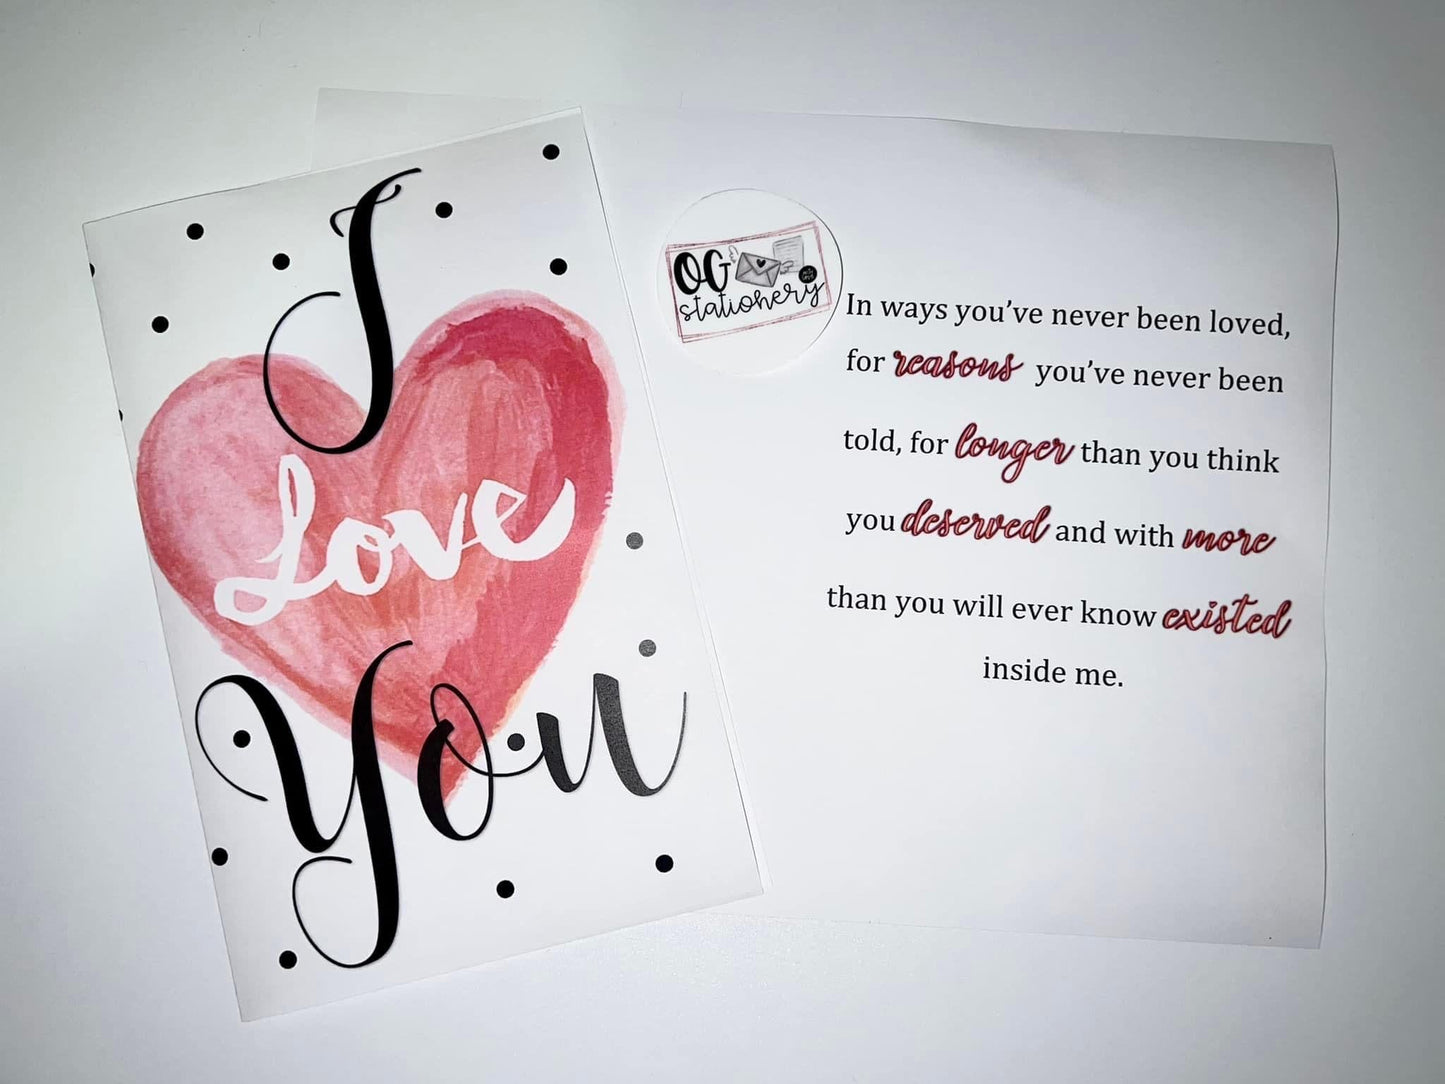 I
Love
You
OG
stationery
In ways you've never been loved,
for reasons you've never been
told, for longer than you think
you deserved and with more
than you will ever know existed
inside me.